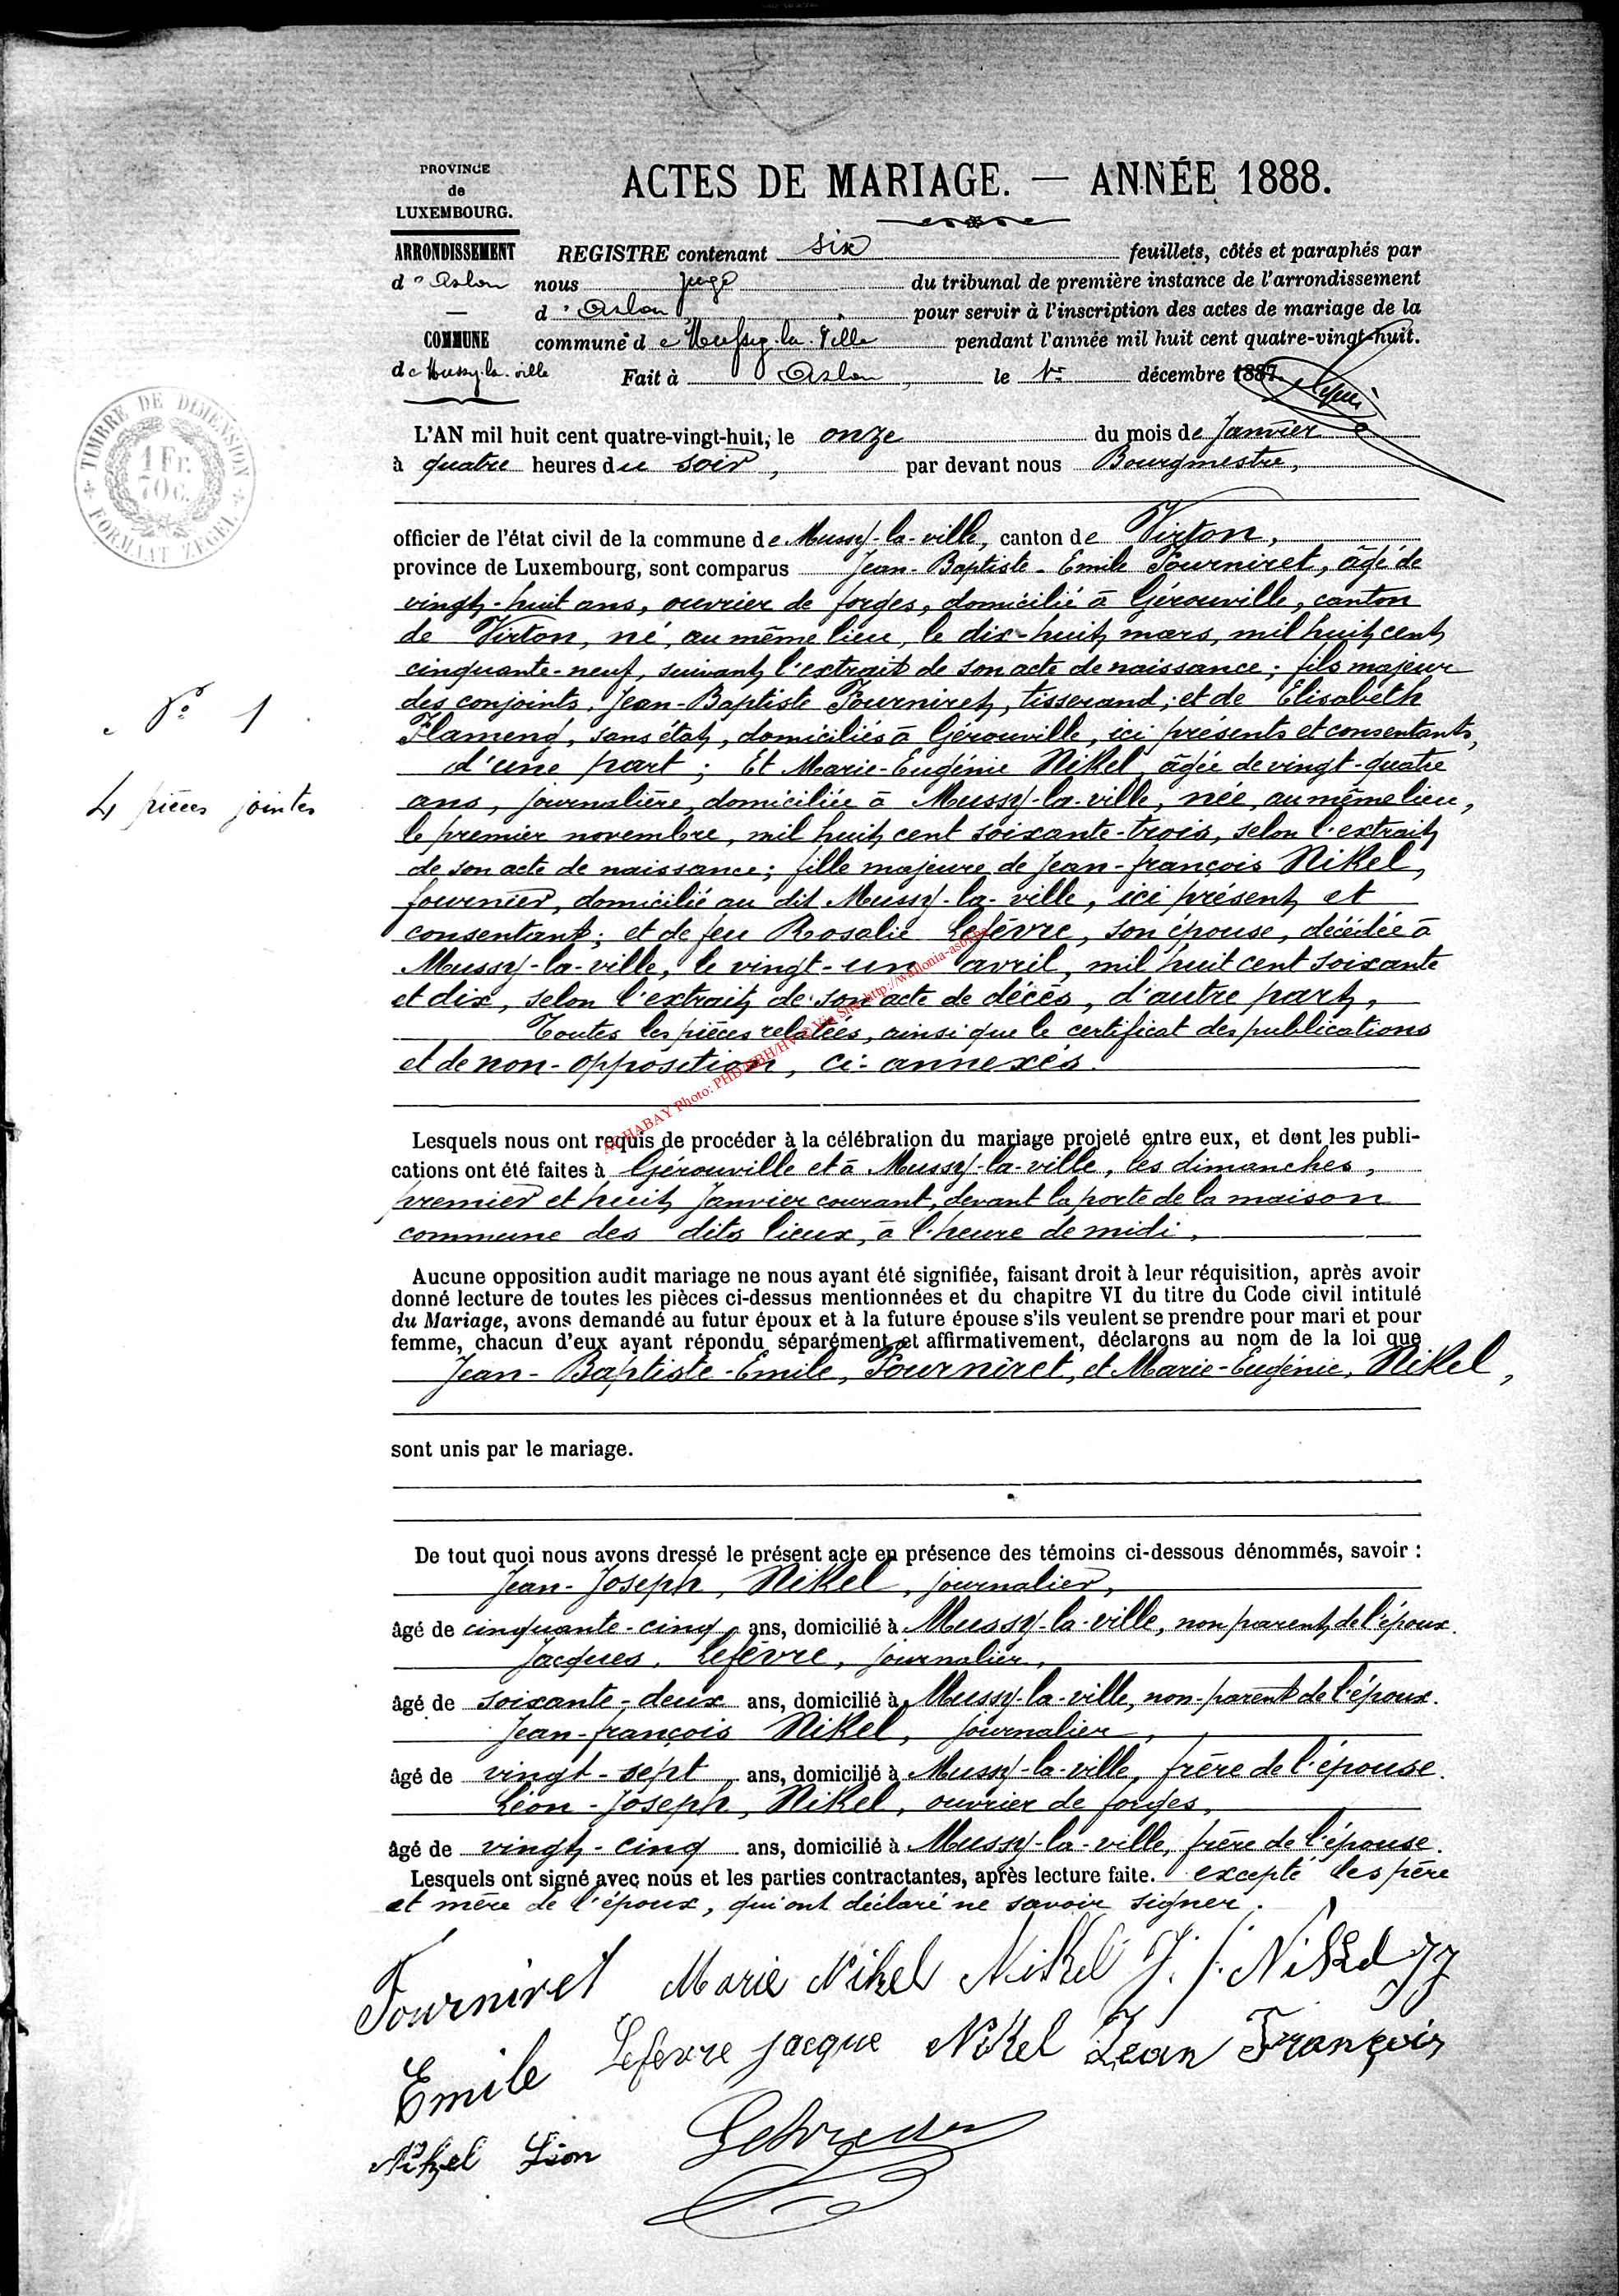 PROVINCE
de
LUXEMBOURG.
ACTES DE MARIAGE. — ANNÉE 1888.
ARRONDISSEMENT
d'Arlon
COMMUNE
de Mussy-la-ville
REGISTRE contenant six feuillets, côtés et paraphés par
nous juge du tribunal de première instance de l'arrondissement
d'Arlon pour servir à l'inscription des actes de mariage de la
commune de Mussy-la-Ville pendant l'année mil huit cent quatre-vingt-huit.
Fait à Arlon, le 1er décembre 1887.
TIMBRE DE DIMENSION
1 Fr.
70 c.
FORMAAT ZEGEL
L'AN mil huit cent quatre-vingt-huit, le onze du mois de Janvier
à quatre heures du soir, par devant nous Bourgmestre,
officier de l'état civil de la commune de Mussy-la-ville, canton de Virton,
province de Luxembourg, sont comparus Jean-Baptiste-Emile Fourniret, âgé de
vingt-huit ans, ouvrier de forges, domicilié à Gérouville, canton
de Virton, né, au même lieu, le dix-huit mars, mil huit cent
cinquante-neuf, suivant l'extrait de son acte de naissance; fils majeur
N° 1
des conjoints, Jean-Baptiste Fourniret, tisserand; et de Elisabeth
Flamend, sans état, domiciliés à Gérouville, ici présents et consentants,
d'une part; Et Marie-Eugénie Nikel, âgée de vingt-quatre
4 pièces jointes
ans, journalière, domiciliée à Mussy-la-ville, née, au même lieu,
le premier novembre, mil huit cent soixante-trois, selon l'extrait
de son acte de naissance; fille majeure de Jean-françois Nikel,
fournier, domicilié au dit Mussy-la-ville, ici présent et
consentant; et de feu Rosalie Lefèvre, son épouse, décédée à
Mussy-la-ville, le vingt-un avril, mil huit cent soixante
et dix, selon l'extrait de son acte de décès, d'autre part,
Toutes les pièces relatées, ainsi que le certificat des publications
et de non-opposition, ci-annexés.
Lesquels nous ont requis de procéder à la célébration du mariage projeté entre eux, et dont les publi-
cations ont été faites à Gérouville et à Mussy-la-ville, les dimanches,
premier et huit Janvier courant, devant la porte de la maison
commune des dits lieux, à l'heure de midi.
Aucune opposition audit mariage ne nous ayant été signifiée, faisant droit à leur réquisition, après avoir
donné lecture de toutes les pièces ci-dessus mentionnées et du chapitre VI du titre du Code civil intitulé
du Mariage, avons demandé au futur époux et à la future épouse s'ils veulent se prendre pour mari et pour
femme, chacun d'eux ayant répondu séparément et affirmativement, déclarons au nom de la loi que
Jean-Baptiste-Emile, Fourniret, et Marie-Eugénie, Nikel,
sont unis par le mariage.
De tout quoi nous avons dressé le présent acte en présence des témoins ci-dessous dénommés, savoir :
Jean-Joseph, Nikel, journalier,
âgé de cinquante-cinq ans, domicilié à Mussy-la-ville, non parent de l'époux.
Jacques, Lefèvre, journalier,
âgé de soixante-deux ans, domicilié à Mussy-la-ville, non-parent de l'époux.
Jean-françois Nikel, journalier,
âgé de vingt-sept ans, domicilié à Mussy-la-ville, frère de l'épouse.
Léon-Joseph, Nikel, ouvrier de forges,
âgé de vingt-cinq ans, domicilié à Mussy-la-ville, frère de l'épouse.
Lesquels ont signé avec nous et les parties contractantes, après lecture faite. excepté les père
et mère de l'époux, qui ont déclaré ne savoir signer.
Fourniret Marie Nikel Nikel J. f. Nikel JJ
Emile Lefevre jacque Nikel Jean François
Nikel Léon